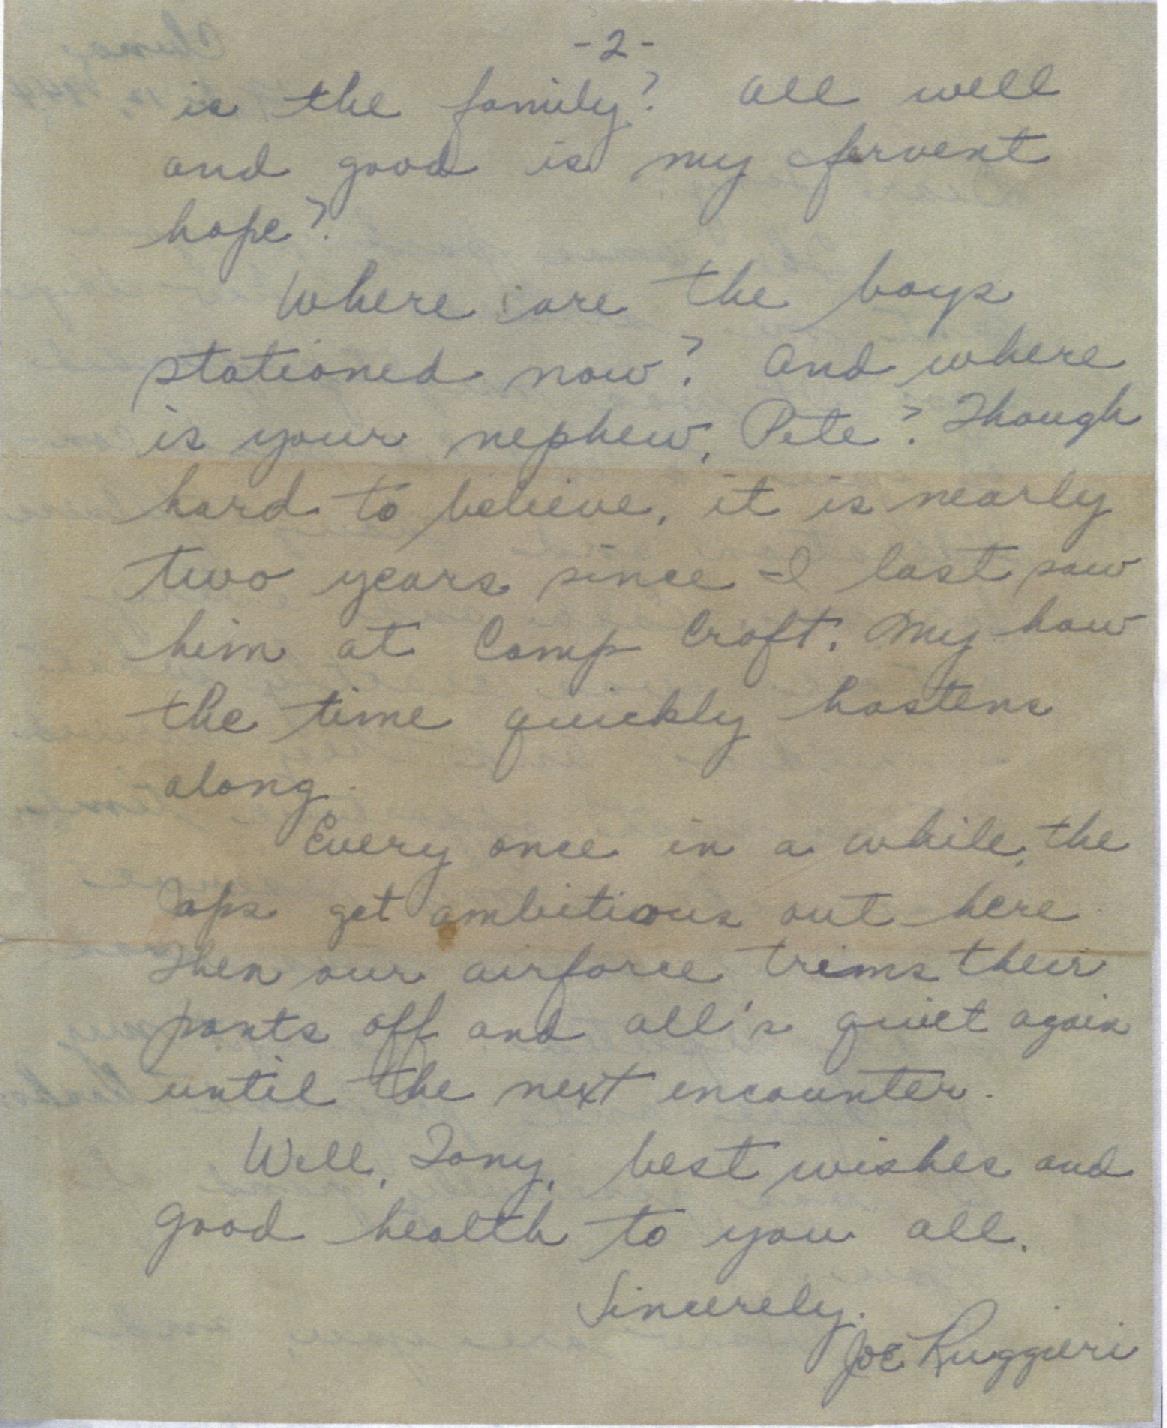 -2-
is the family? All well
and good is my fervent
hope?
Where are the boys
stationed now? And where
is your nephew, Pete? Though
hard to believe, it is nearly
two years since I last saw
him at Camp Croft. My how
the time quickly hastens
along.
Every once in a while, the
aps get ambitious out here.
Then our airforce trims their
pants off and all's quiet again
until the next encounter.
Well, Tony, best wishes and
good health to you all.
Sincerely,
Joe Ruggieri